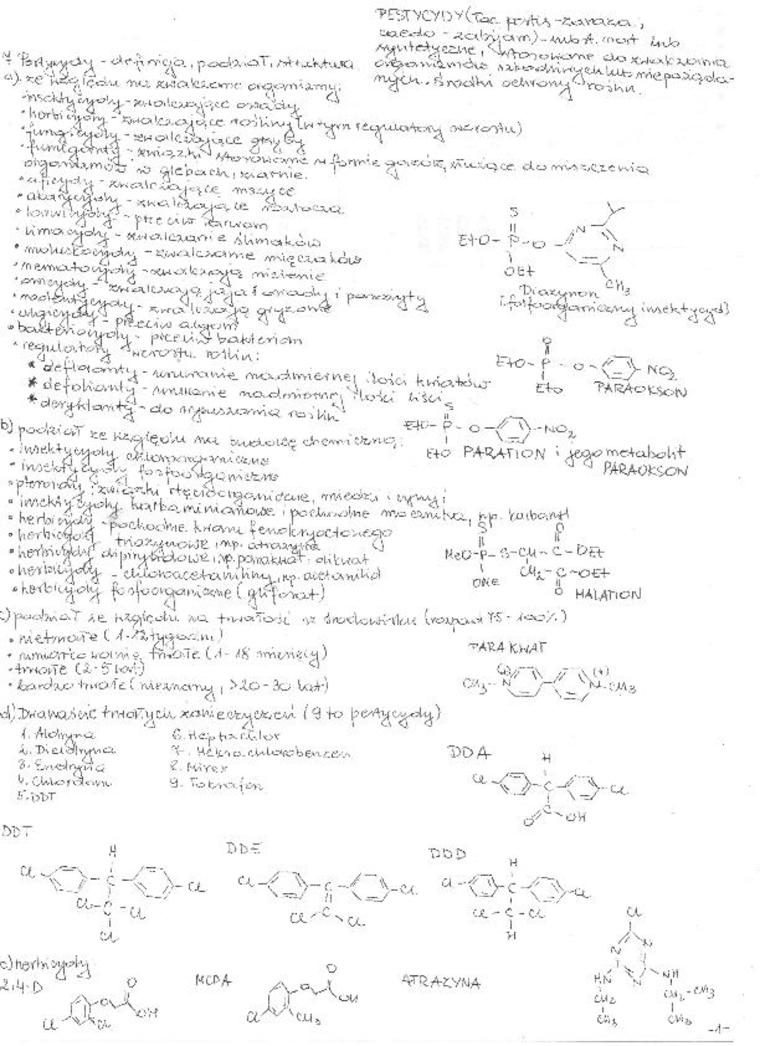 PESTYCYDY (łac. pestis - zaraza,
caedo - zabijam) - subst. nat. lub
syntetyczne, stosowane do zwalczania
organizmów szkodliwych lub niepożąda-
nych. Środki ochrony roślin.
Pestycydy - definicja, podział, struktura
a) ze względu na zwalczane organizmy:
• insektycydy - zwalczające owady
• herbicydy - zwalczające rośliny (w tym regulatory wzrostu)
• fungicydy - zwalczające grzyby
• fumiganty - związki stosowane w formie gazów, służące do niszczenia
organizmów w glebach, ziarnie.
• aficydy - zwalczające mszyce
• akarycydy - zwalczające roztocza
• larwicydy - przeciw larwom
• limacydy - zwalczanie ślimaków
• moluskocydy - zwalczanie mięczaków
• nematocydy - zwalczają nicienie
• owicydy - zwalczają jaja owady i pasożyty
• rodentycydy - zwalczają gryzonie
• algicydy - przeciw algom
• bakteriocydy - przeciw bakteriom
• regulatory wzrostu roślin:
* defloranty - usuwanie nadmiernej ilości kwiatów
* defolianty - usuwanie nadmiernej ilości liści
* desykanty - do wysuszania roślin
S
EtO-P-O-
OEt
N
N
CH3
Diazynon
(fosfoorganiczny insektycyd)
O
EtO-P-O-
-NO2
EtO
PARAOKSON
S
EtO-P-O-
-NO2
EtO PARATION i jego metabolit
PARAOKSON
b) podział ze względu na budowę chemiczną:
• insektycydy chloroorganiczne
• insektycydy fosfoorganiczne
• pteroidy; związki rtęcioorganiczne, miedzi i cyny;
• insektycydy karbaminianowe i pochodne mocznika, np. karbaryl
• herbicydy - pochodne kwasu fenoksyoctowego
• herbicydy triazynowe, np. atrazyna
• herbicydy dipirydylowe, np. parakwat, dikwat
• herbicydy - chloroacetaniliny, np.
• herbicydy fosfoorganiczne (glifosat)
S
O
MeO-P-S-CH-C-OEt
OMe
CH2-C-OEt
O
MALATION
c) podział ze względu na trwałość w środowisku (rozpad 75-100%)
• nietrwałe (1-12 tygodni)
• umiarkowanie trwałe (1-18 miesięcy)
• trwałe (2-5 lat)
• bardzo trwałe (nieznany, >20-30 lat)
PARAKWAT
CH3-N
(+)
(+)
N-CH3
d) Dwanaście trwałych zanieczyszczeń (9 to pestycydy)
1. Aldryna
2. Dieldryna
3. Endryna
4. Chlordan
5. DDT
6. Heptachlor
7. Heksachlorobenzen
8. Mirex
9. Toksafen
DDA
H
Cl
C
Cl
C
O
OH
DDT
H
Cl
C
Cl
Cl-C-Cl
Cl
DDE
Cl
C
Cl
C
Cl
Cl
DDD
H
Cl
C
Cl
Cl-C-Cl
H
e) herbicydy
2,4-D
O
O
OH
Cl
Cl
MCPA
O
O
OH
Cl
CH3
ATRAZYNA
Cl
N
N
N
HN
NH
CH2
CH3
CH2-CH3
CH3
-1-